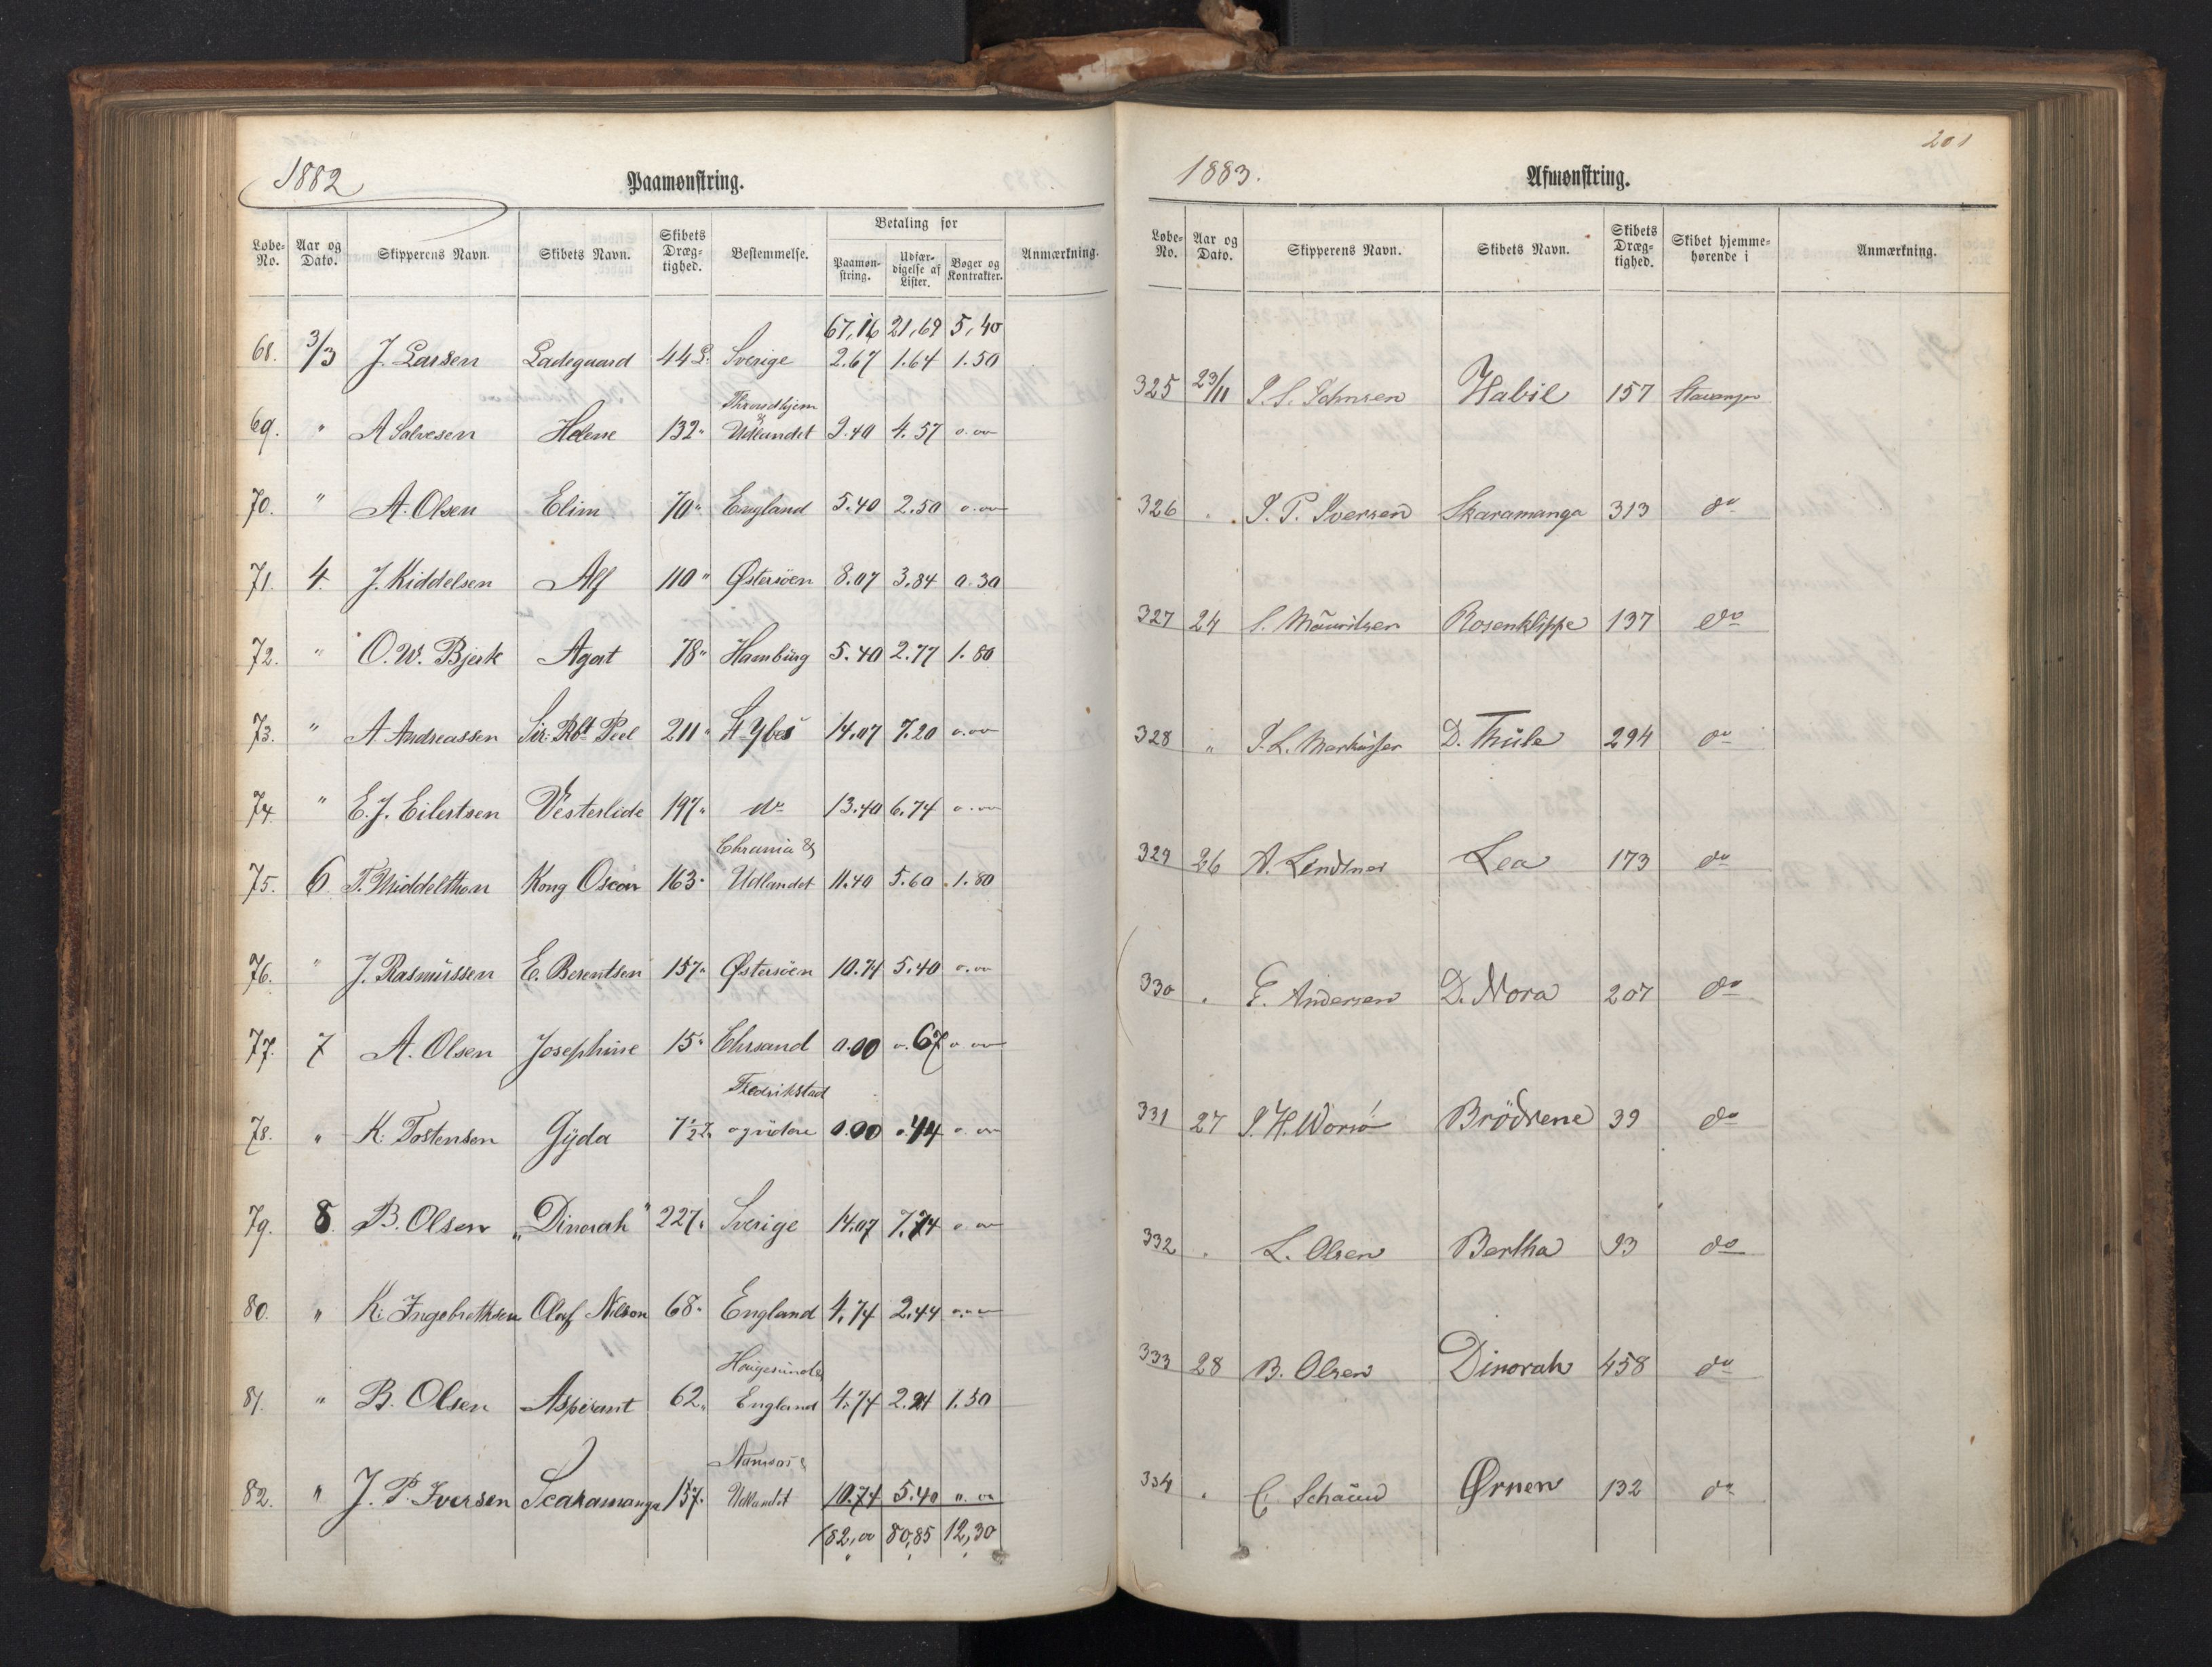 1882
Paamønstring.
Løbe-No. Aar og Dato. Skipperens Navn. Skibets Navn. Skibets Dræg-tighed. Bestemmelse. Betaling for Paamøn-string. Udfær-digelse af Lister. Bøger og Kontrakter. Anmærkning.
67,16 21,69 5,40
68. 3/3 J. Larsen Ladegaard 44 L. Sverige 2.67 1.64 1.50
Throndhjem
69. " A Salvesen Helene 132 " & Udlandet 9.40 4.57 0.00
70. " A. Olsen Elim 70 " England 5.40 2.50 0.00
71. 4. J. Kiddelsen Alf 110 " Østersöen 8.07 3.84 0.30
72. " O. W. Bjerk Agat 78 " Hamburg 5.40 2.77 1.80
73. " A Andreassen Sir Rbt Peel 211 " St Ybes 14.07 7.20 0.00
74. " E. J. Eilertsen Vesterlide 197 " do 13.40 6.74 0.00
Chrania &
75. 6 T. Middelthon Kong Oscar 163 " Udlandet 11.40 5.60 1.80
76. " J. Rasmussen E. Berentsen 157 " Østersöen 10.74 5.40 0.00
77. 7 A. Olsen Josephine 15 " Chrsand 0.00 0.67 0.00
Fredrikstad
78. " K. Tostensen Gyda 7 1/2 L. og videre 0.00 0.44 0.00
79. 8. B. Olsen "Dinorah" 227 " Sverige 14.07 7.74 0.00
80. " K. Ingebrethsen Olaf Nilson 68 " England 4.74 2.44 0.00
Haugesund &
81. " B. Olsen Aspirant 62 " England 4.74 2.21 1.50
Namsos &
82. " J. P. Iversen Scaramanga 157 " Udlandet 10.74 5.40 0.00
182,00 80,85 12,30
201
1883.
Afmønstring.
Løbe-No. Aar og Dato. Skipperens Navn. Skibets Navn. Skibets Dræg-tighed. Skibet hjemme-hørende i Anmærkning.
325 23/11 J. S. Johnsen Habil 157 Stavanger
326 " J. P. Iversen Skaramanga 313 do
327 24 S. Mauritzen Rosenklippe 137 do
328 " J. L. Markussen D. Thule 294 do
329 26 A. Lindtner Lea 173 do
330 " E. Andersen D. Nora 207 do
331 27 J. H. Worsö Brödrene 39 do
332 " L. Olsen Bertha 93 do
333 28 B. Olsen Dinorah 458 do
334 " C. Ørnen 132 do